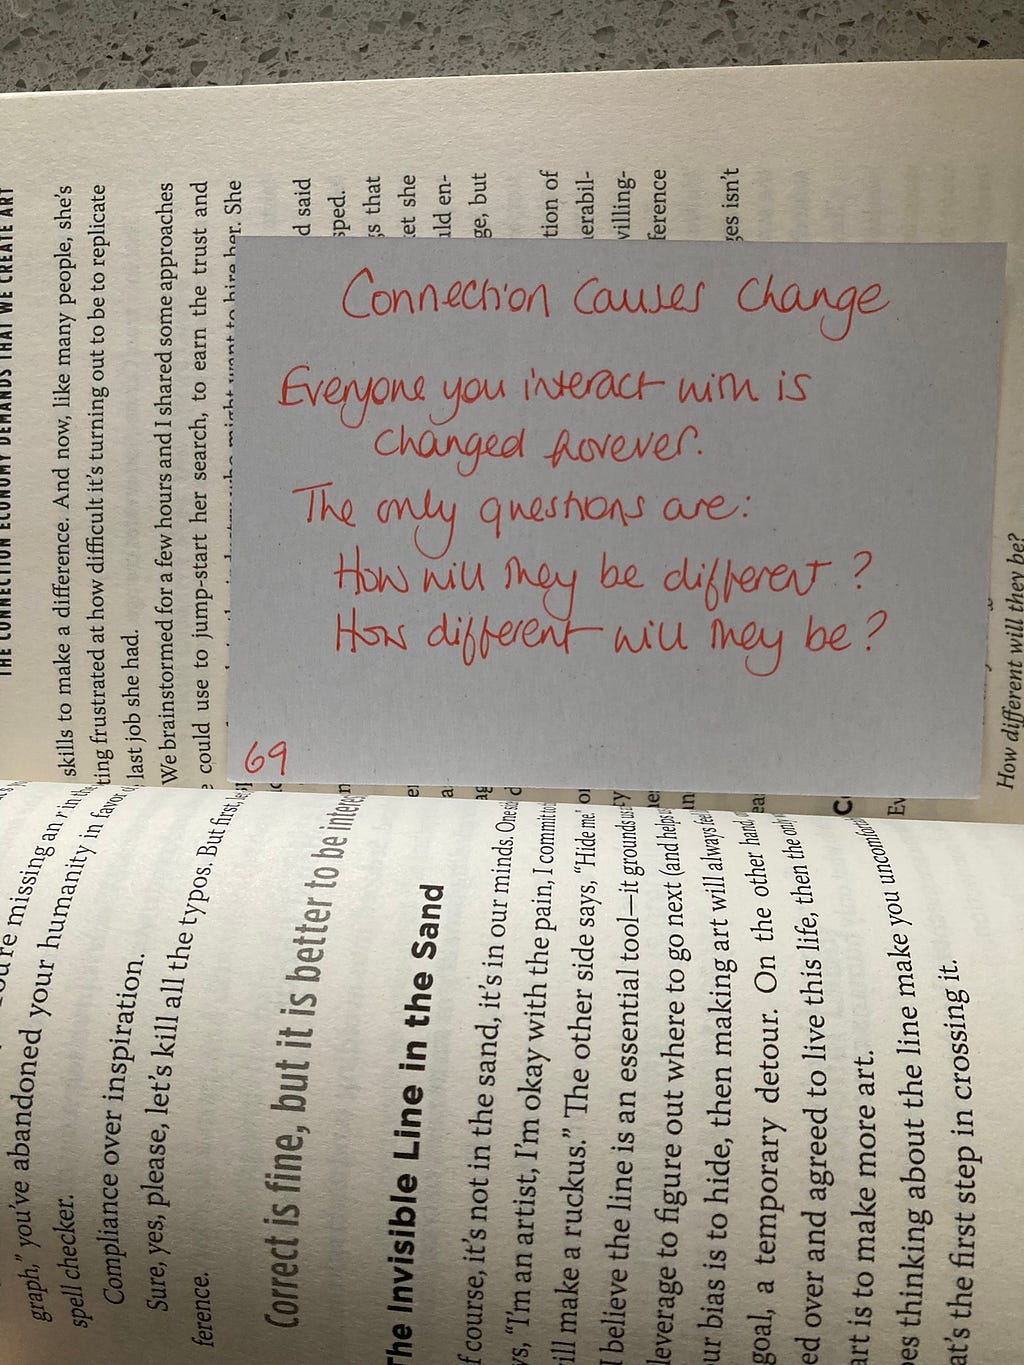 Connection Causes Change
Everyone you interact with is
changed forever.
The only questions are:
How will they be different?
How different will they be?
69
missing an r in the
graph," you've abandoned your humanity in favor
spell checker.
Compliance over inspiration.
Sure, yes, please, let's kill all the typos. But first,
ference.
Correct is fine, but it is better to be
The Invisible Line in the Sand
f course, it's not in the sand, it's in our minds. One
"I'm an artist, I'm okay with the pain, I commit to
ill make a ruckus." The other side says, "Hide me'
I believe the line is an essential tool—it grounds
leverage to figure out where to go next (and helps
ur bias is to hide, then making art will always
goal, a temporary detour. On the other hand,
ed over and agreed to live this life, then the only
art is to make more art.
es thinking about the line make you
at's the first step in crossing it.
THE CONNECTION ECONOMY DEMANDS THAT WE CREATE ART
skills to make a difference. And now, like many people, she's
ting frustrated at how difficult it's turning out to be to replicate
last job she had.
We brainstormed for a few hours and I shared some approaches
could use to jump-start her search, to earn the trust and
who might want to hire her. She
d said
sped.
s that
ket she
uld en-
ge, but
tion of
nerabil-
willing-
ference
ges isn't
How different will they be?